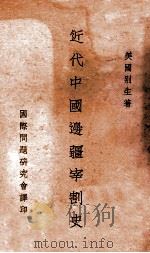 美國別生著
近代中國邊疆宰割史
國際問題研究會譯印
mtoou.info